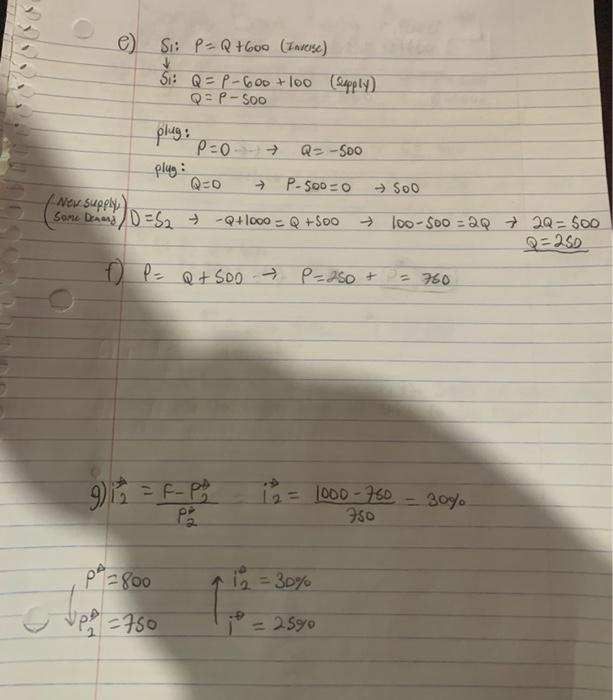 e) S₁: P = Q + 600 (Inverse)
↓
S₁: Q = P - 600 + 100 (Supply)
Q = P - 500
plug:
P = 0 → Q = -500
plug:
Q = 0 → P - 500 = 0 → 500
(New supply, Same Demand) D = S₂ → -Q + 1000 = Q + 500 → 100 - 500 = 2Q → 2Q = 500
Q = 250
f) P = Q + 500 → P = 250 + P = 750
g) i₂* = F - P₂* / P₂* i₂* = 1000 - 750 / 750 = 30%
P* = 800 ↑ i₂* = 30%
↓ P₂* = 750 i* = 25%